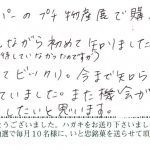 パーのプチ物産展で購
ながら初めて知りました
待していなかったのですが)
てビックリ。今まで知ら
ていました。また機会が
したいと思います。
うございました。ハガキをお送り下さいまし
抽選で毎月10名様に、いと忠銘菓を送らせて頂